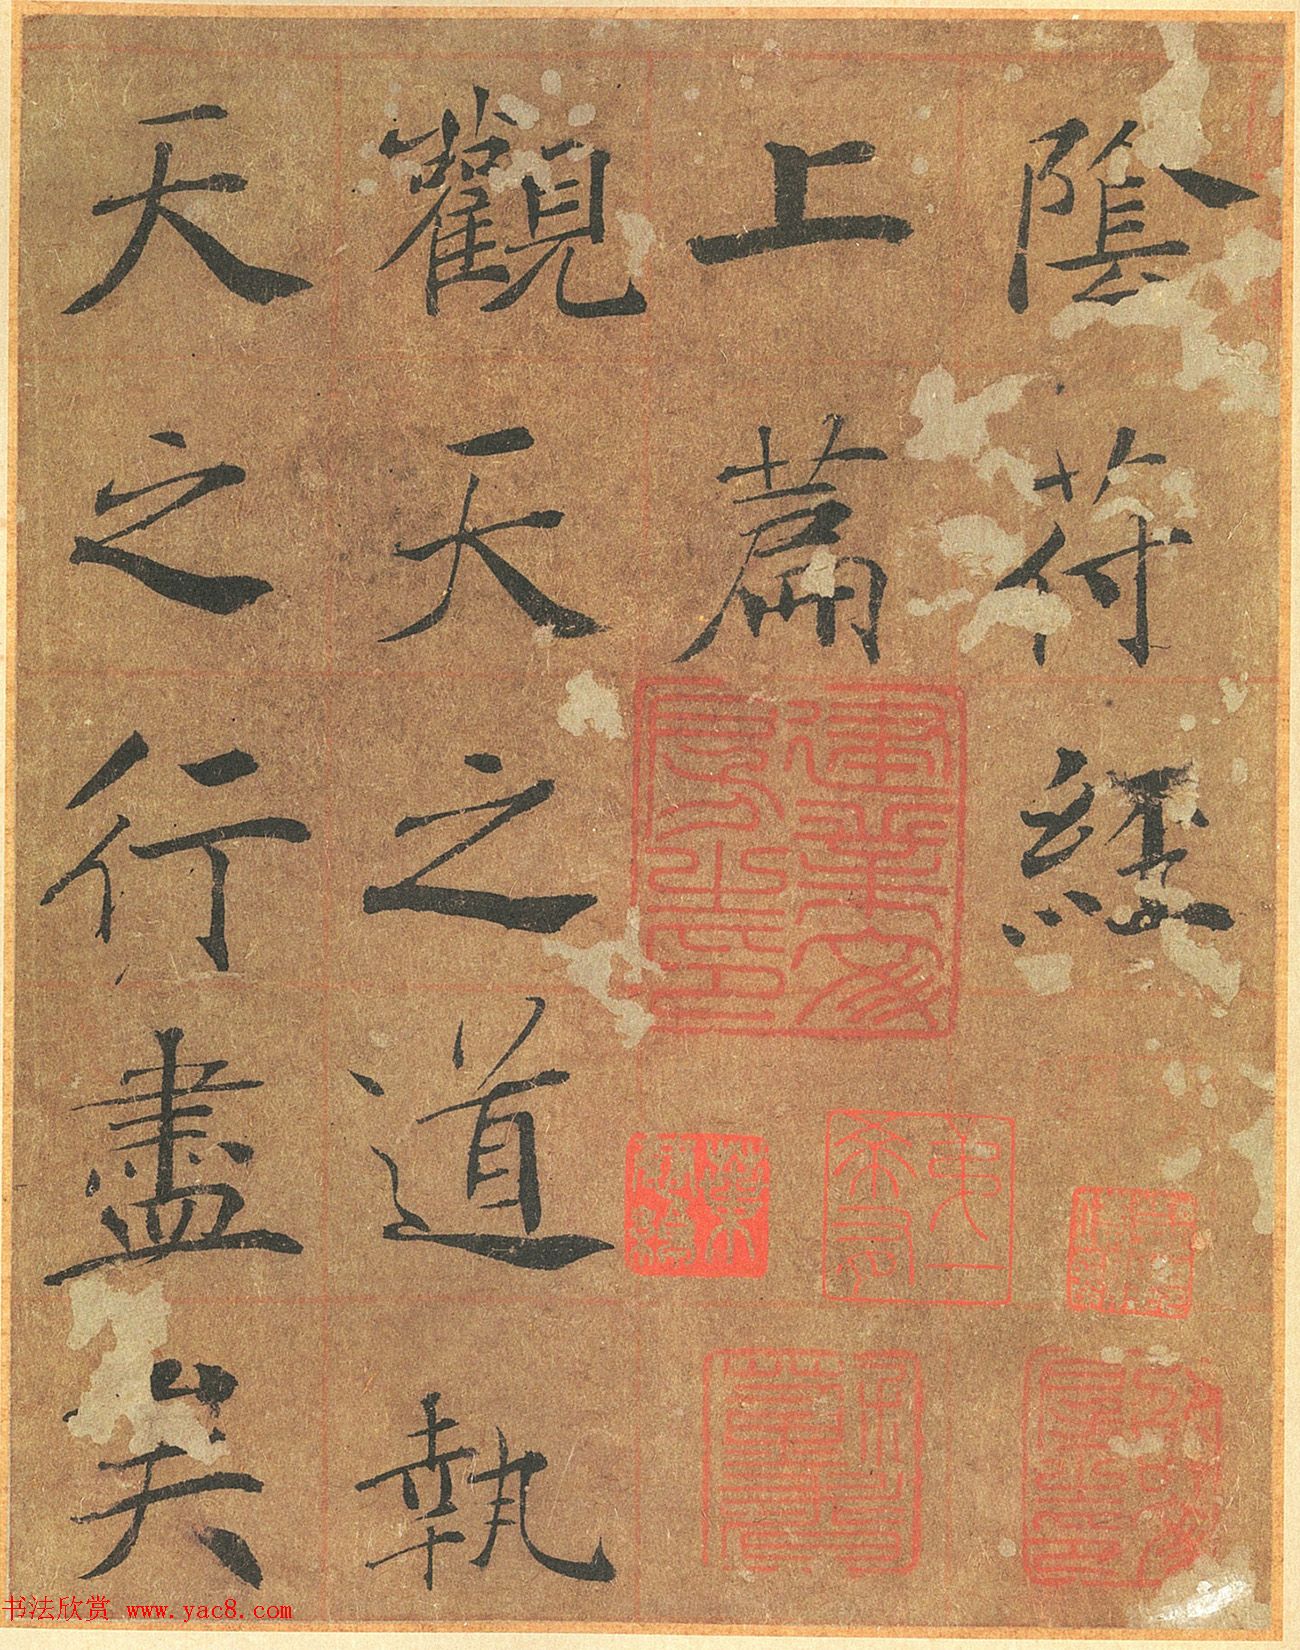 陰符經
上篇
觀天之道執
天之行盡矣
建業文房之印
书法欣赏 www.yac8.com